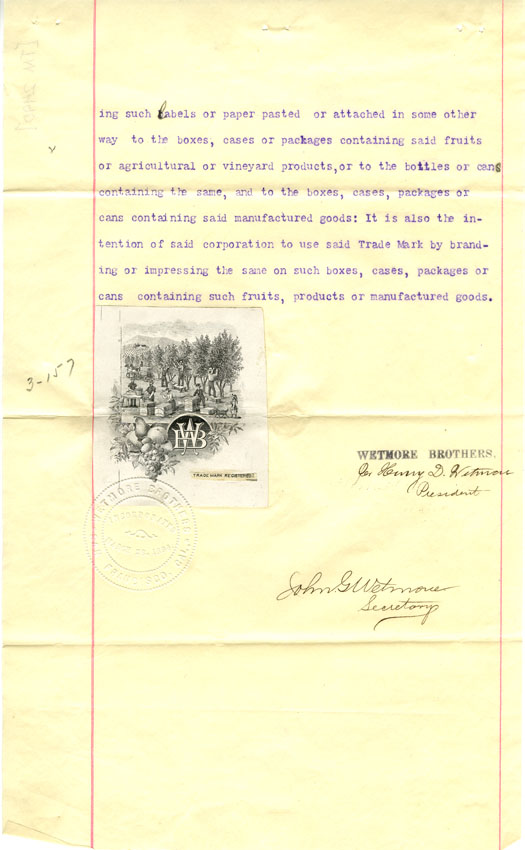 ing such labels or paper pasted or attached in some other
way to the boxes, cases or packages containing said fruits
or agricultural or vineyard products,or to the bottles or cans
containing the same, and to the boxes, cases, packages or
cans containing said manufactured goods: It is also the in-
tention of said corporation to use said Trade Mark by brand-
ing or impressing the same on such boxes, cases, packages or
cans containing such fruits, products or manufactured goods.
3-157
WB
TRADE MARK REGISTERED
WETMORE BROTHERS.
Henry D. Wetmore
President
WETMORE BROTHERS
INCORPORATED
FRANCISCO, CAL.
John G Wetmore
Secretary